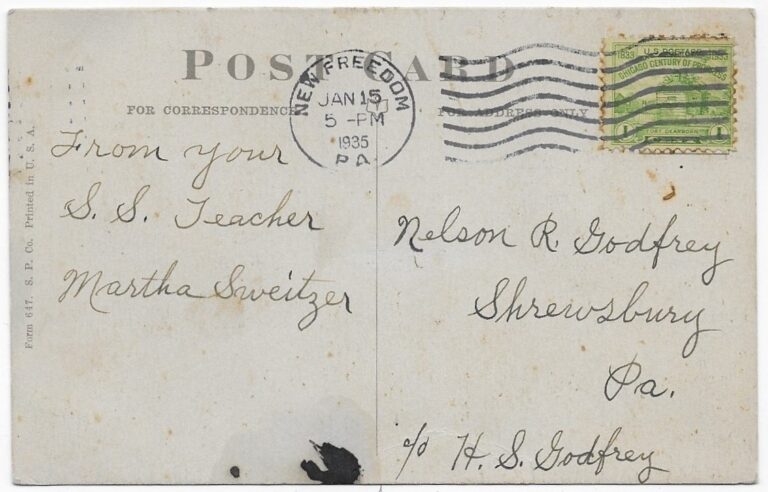 POST CARD
FOR CORRESPONDENCE
FOR ADDRESS ONLY
NEW FREEDOM
JAN 15
5 -PM
1935
PA.
1833 U.S. POSTAGE 1933
CHICAGO CENTURY OF PROGRESS
FORT DEARBORN
1 1
From your
S. S. Teacher
Martha Sweitzer
Nelson R. Godfrey
Shrewsbury
Pa.
c/o H. S. Godfrey
Form 647. S. P. Co. Printed in U. S. A.